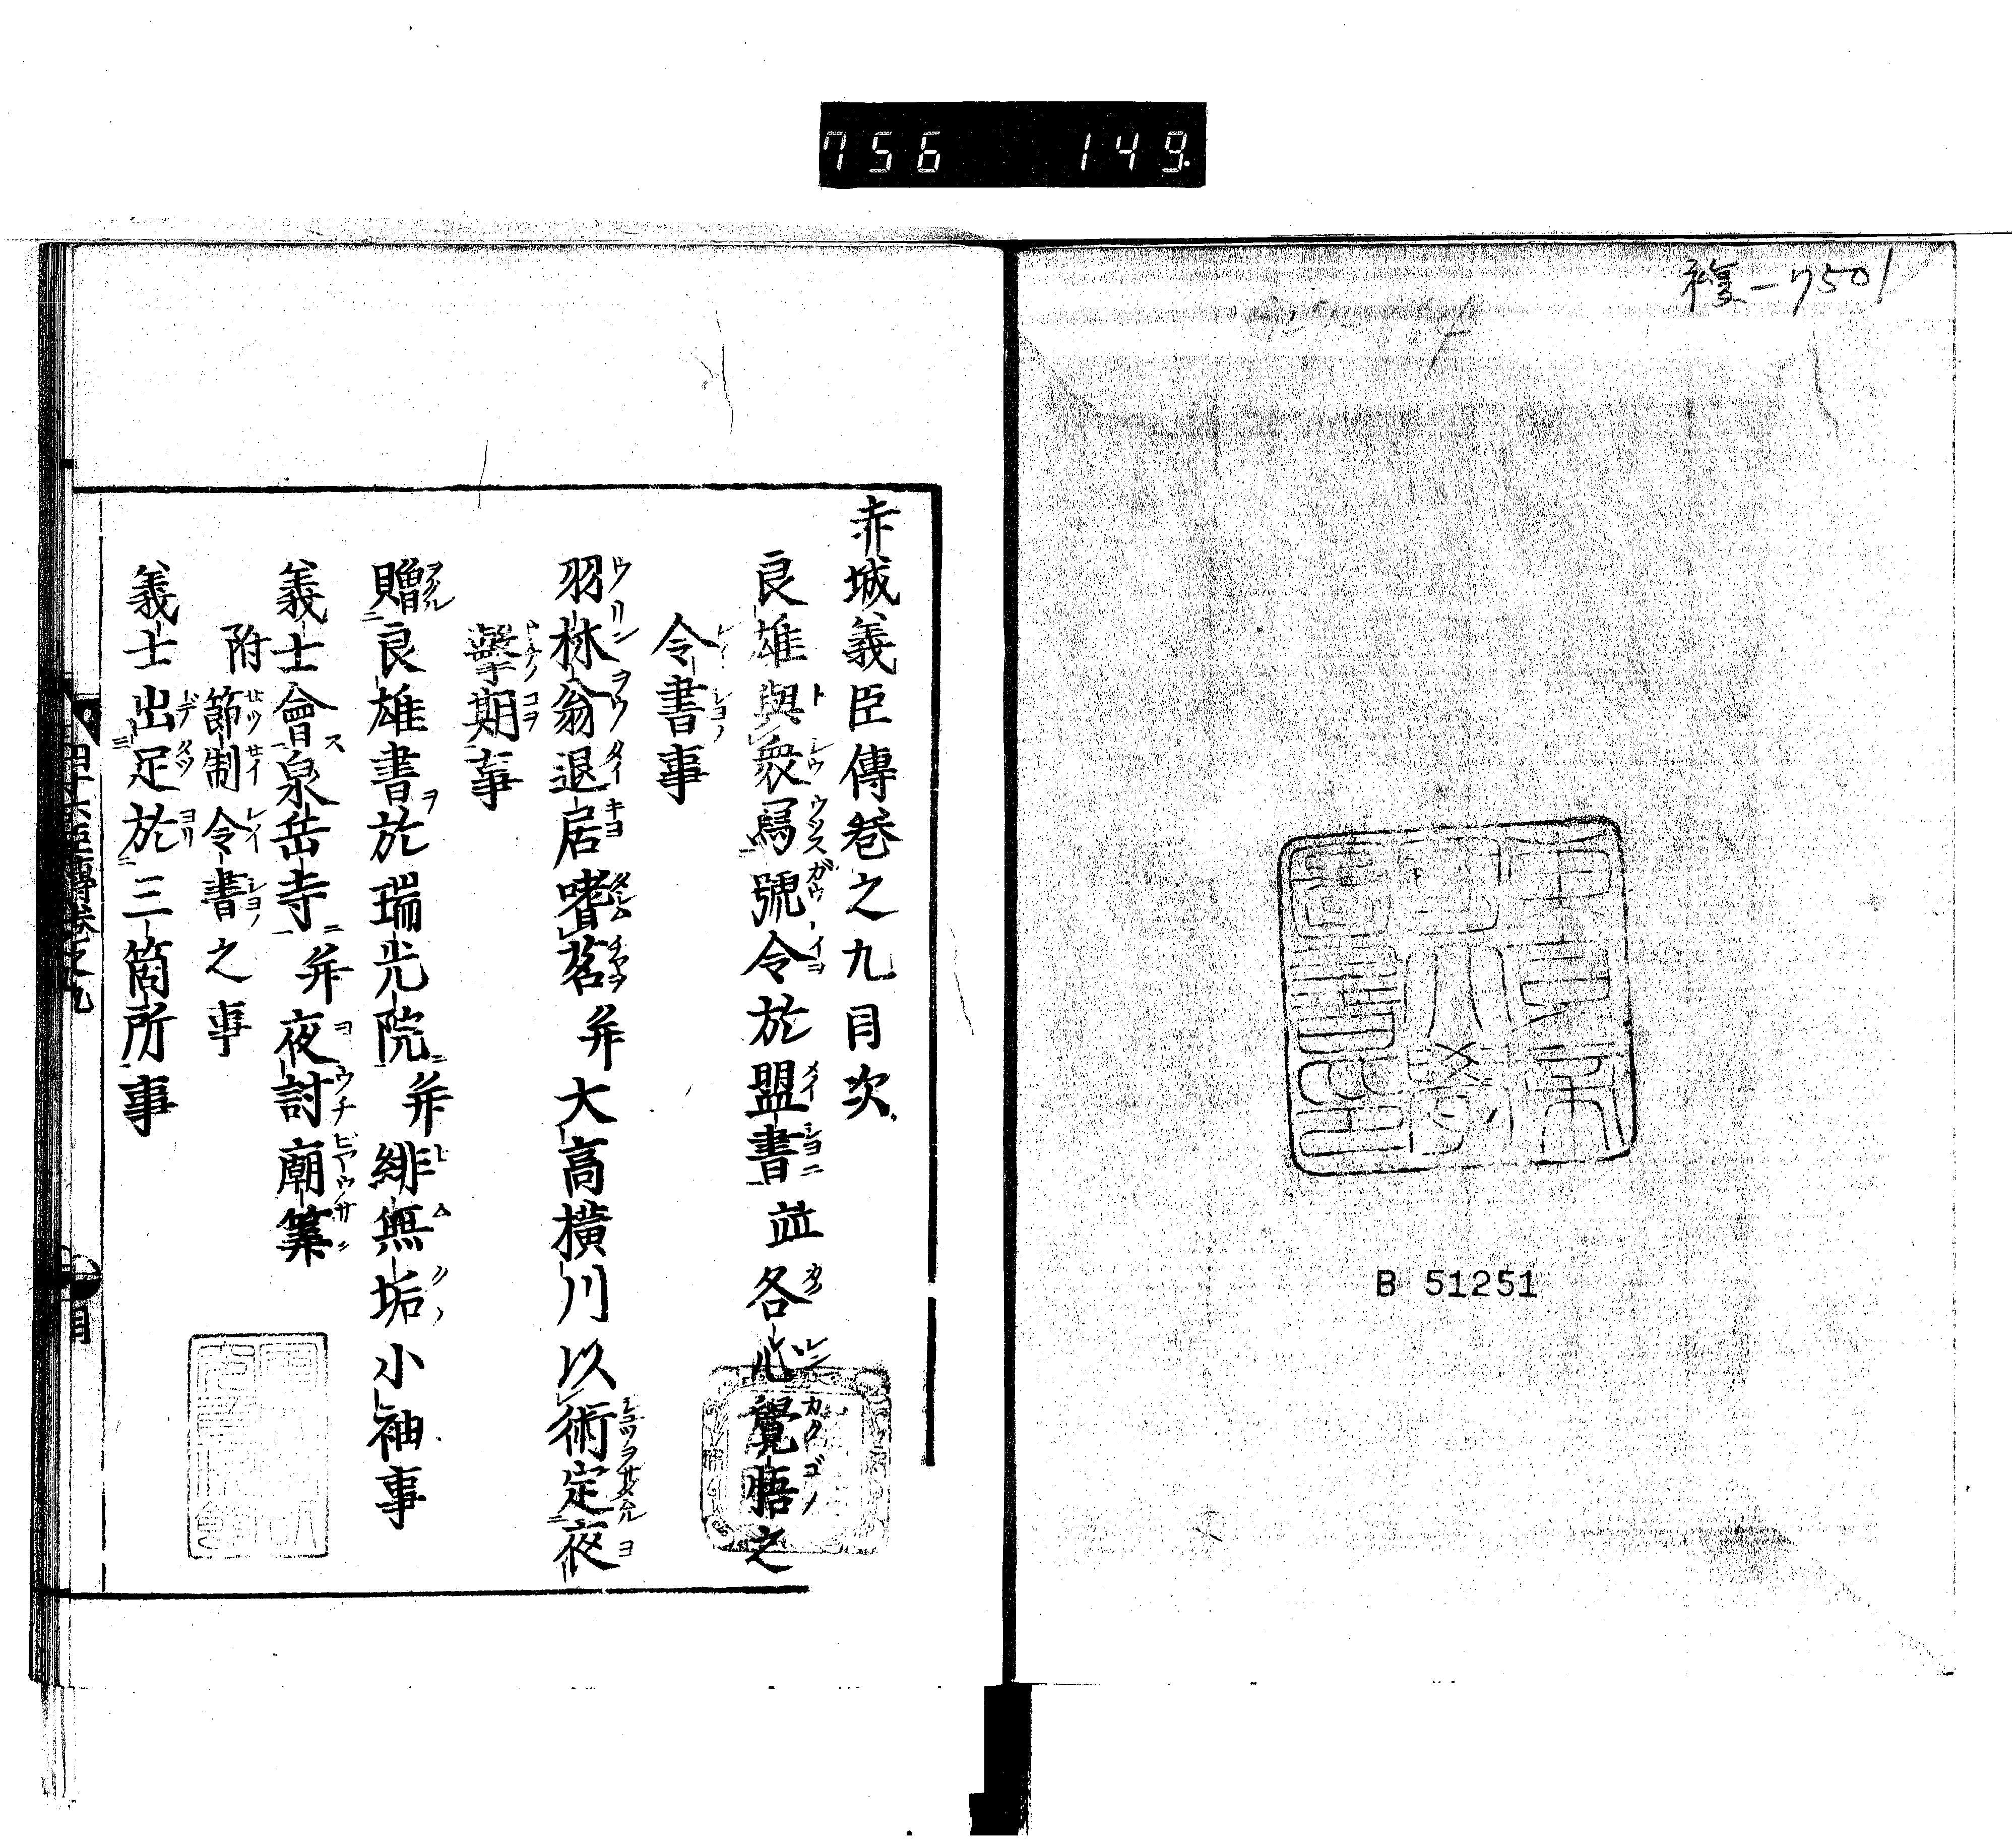 756 149
複-7501
B 51251
赤城義臣傳卷之九目次
良雄與衆寫號令於盟書並各心覺悟之
令書事
羽林翁退居嗜茗并大高橫川以術定夜
擊期事
贈良雄書於瑞光院并緋無垢小袖事
義士會泉岳寺并夜討廟筭
附節制令書之事
義士出足於三箇所事
四十六臣傳卷之九
目